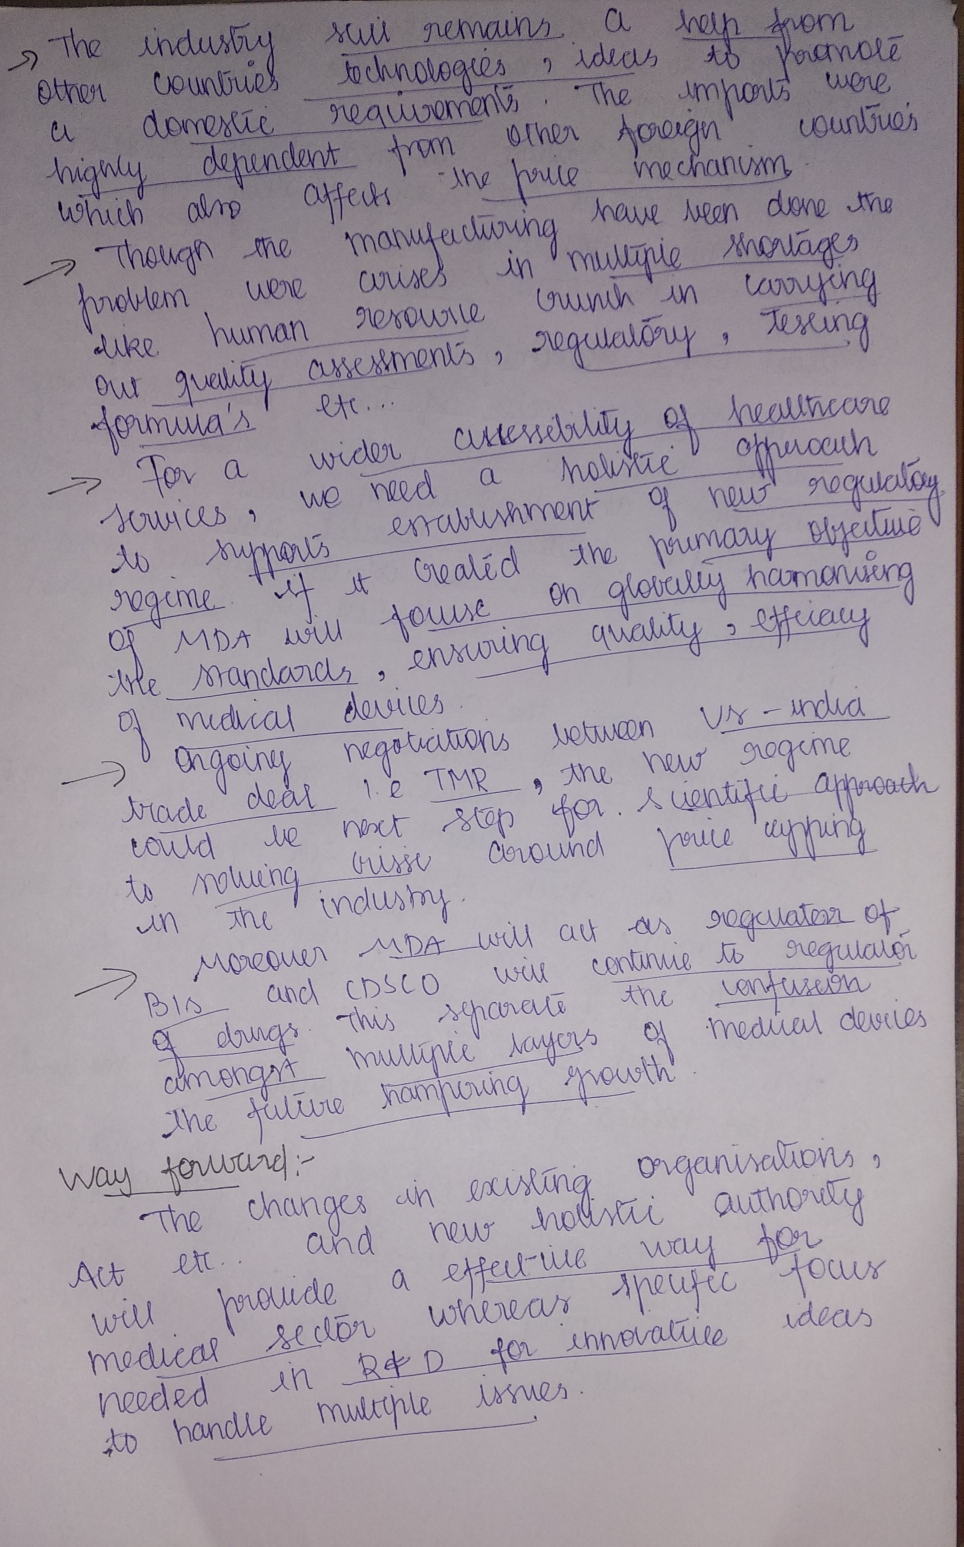 → The industry still remains a help from
other countries technologies, ideas to promote
a domestic requirements. The imports were
highly dependent from other foreign countries
which also affects the price mechanism.
→ Though the manufacturing have been done the
problem were arises in multiple shortages
like human resource crunch in carrying
out quality assessments, regulatory, testing
formula's etc...
→ For a wider accessibility of healthcare
services, we need a holistic approach
to supports establishment of new regulatory
regime. If it created the primary objective
of MDA will focuse on globally harmonising
the standards, ensuring quality, efficiacy
of medical devices.
→ Ongoing negotiations between US-India
trade deal i.e TMR, the new regime
could be next step for scientific approach
to solving crisse around price capping
in the industry.
→ Moreover MDA will act as regulator of
BIS and CDSCO will continue to regulator
of drugs. This separate the confusion
amongst multiple layers of medical devices
the future hampering growth.
Way forward:-
The changes in existing organisations,
Act etc.. and new holistic authority
will provide a effective way for
medical sector whereas specific focus
needed in R&D for innovative ideas
to handle multiple issues.